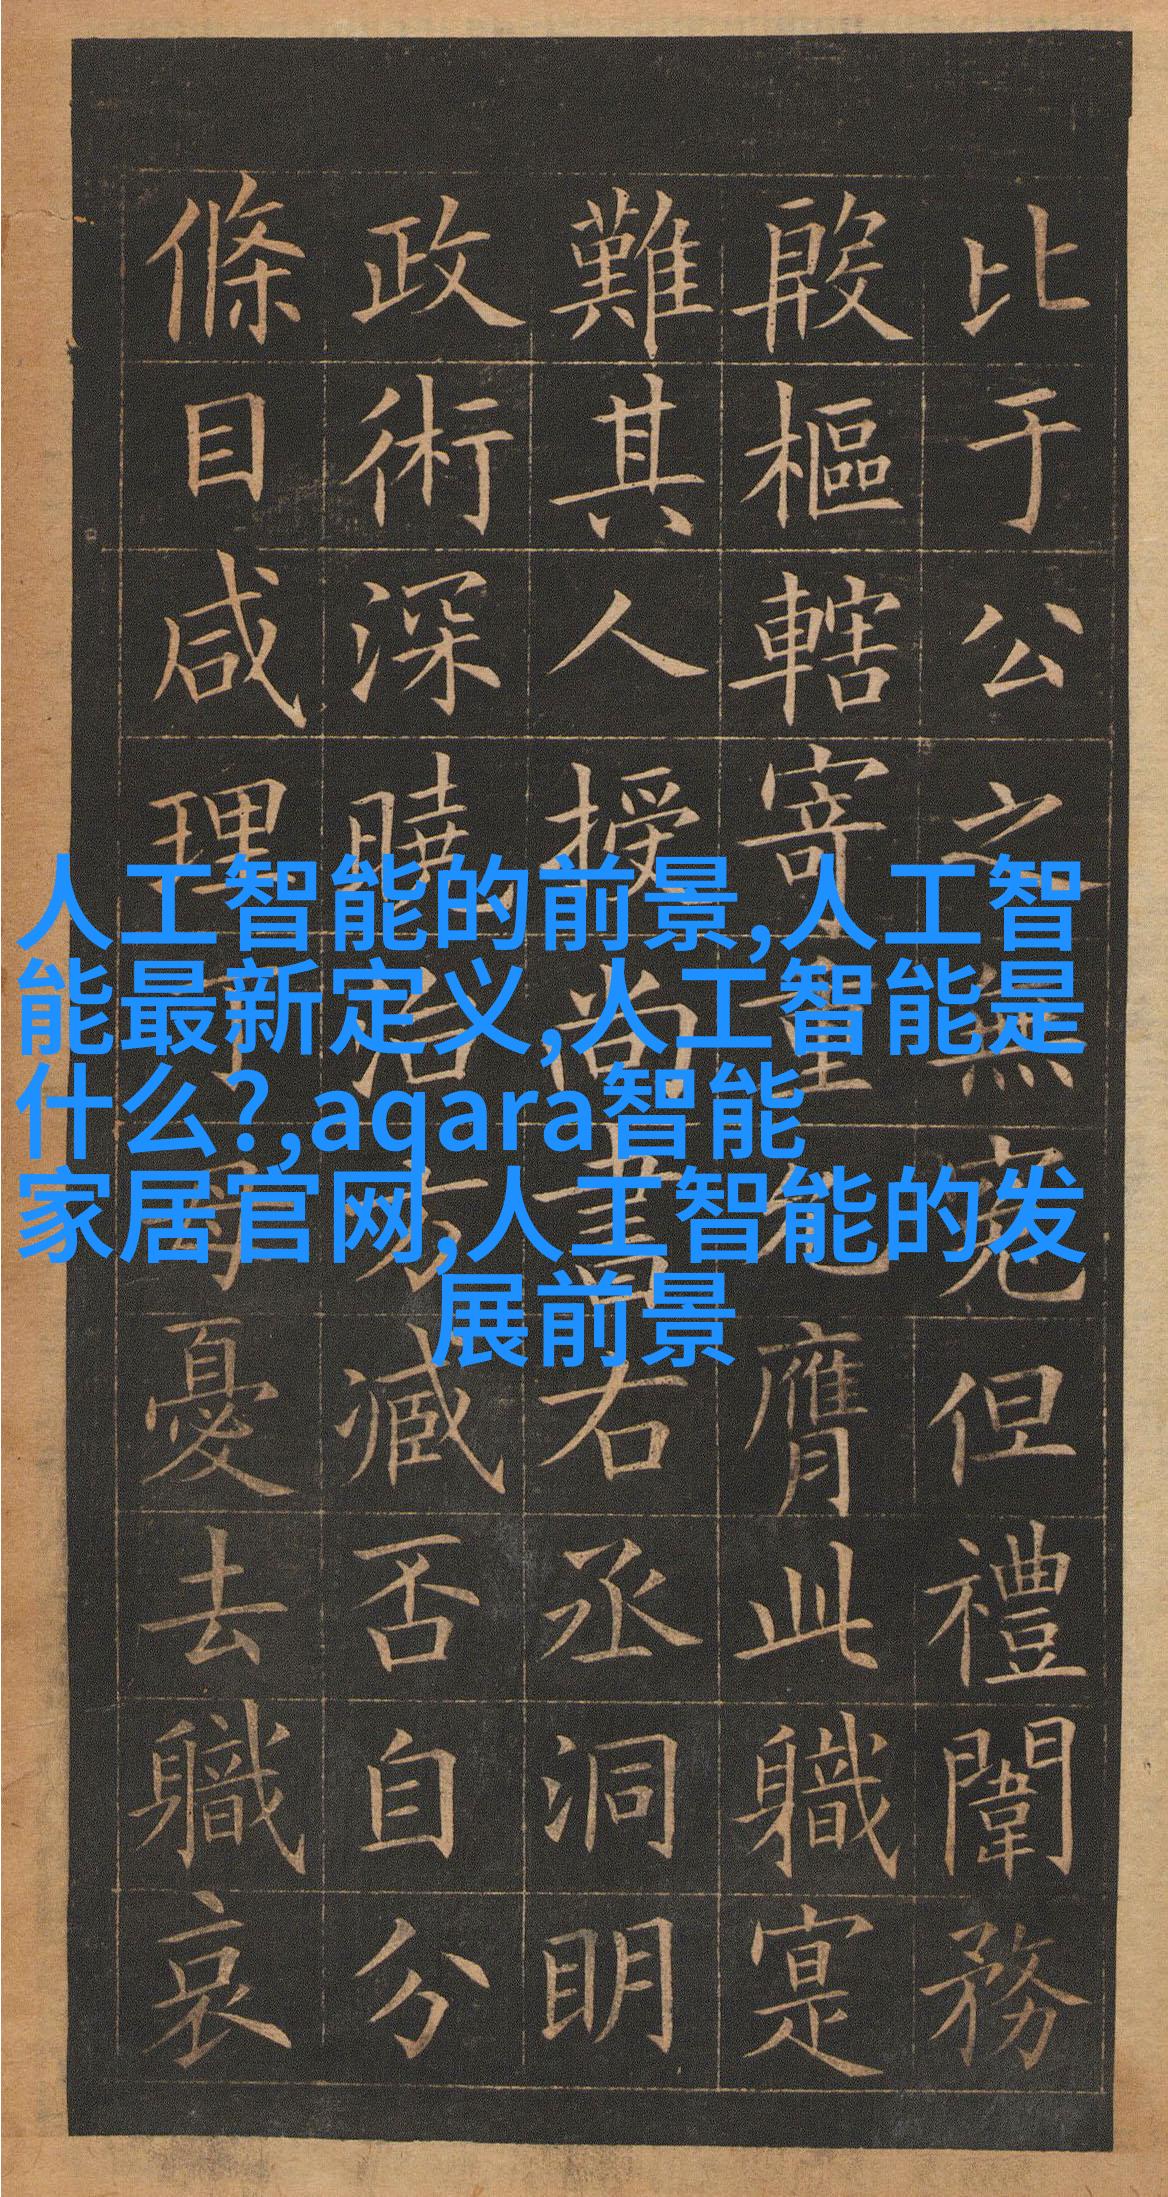 人工智能的前景,人工智
能最新定义,人工智能是
什么?,aqara智能
家居官网,人工智能的发
展前景
比于公之無冤但禮闈務
殷樞轄寄重允膺此職寔
難其人授尚書右丞洞明
政術深曉治方臧否自分
條目咸理丁母憂去職哀